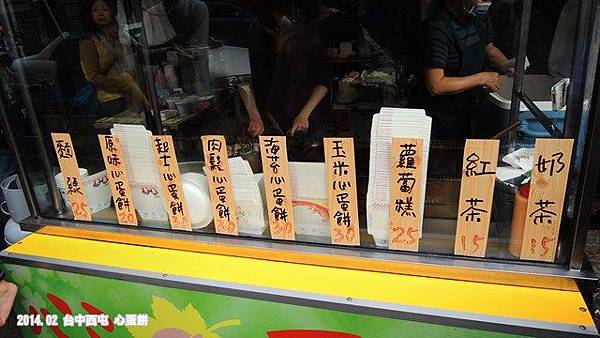 麵線 25
原味心蛋餅 20
起士心蛋餅 30
肉鬆心蛋餅 30
海芬心蛋餅 30
玉米心蛋餅 30
蘿蔔糕 25
紅茶 15
奶茶 15
2014.02 台中西屯 心蛋餅